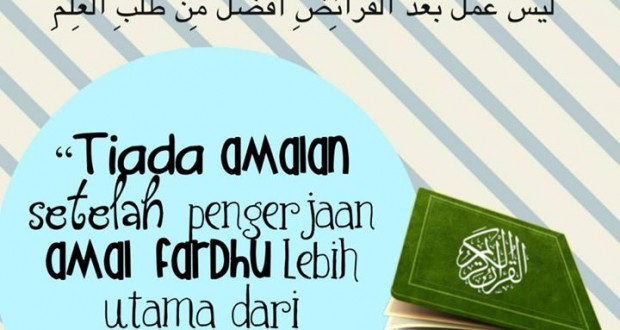 ليس عمل بعد الفرائِضِ أفضل مِن طلبِ العِلمِ
“Tiada amalan
setelah pengerjaan
amal fardhu lebih
utama dari
القرآن الكريم